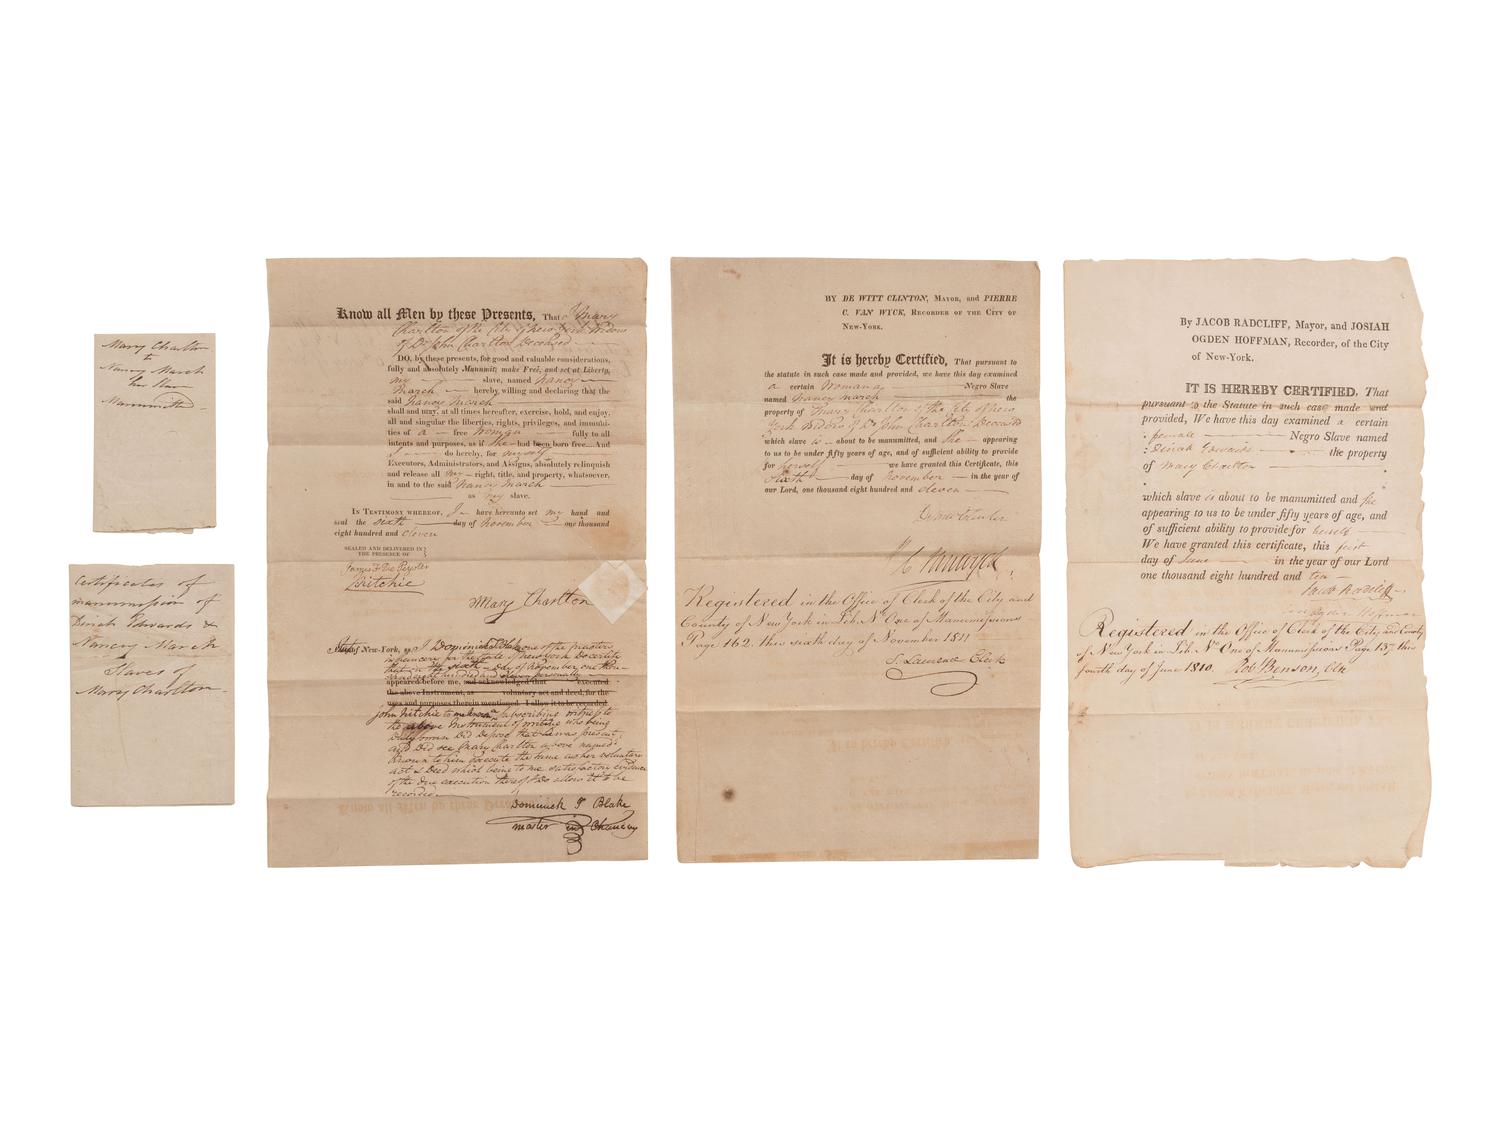 Mary Charlton
to
Nancy March
her Slave
Manumitted
Certificates of
manumission of
Dinah Edwards &
Nancy March
Slaves of
Mary Charlton
Know all Men by these Presents, That I Mary
Charlton of the City of New York Widow
of Dr John Charlton Deceased
DO, by these presents, for good and valuable considerations,
fully and absolutely Manumit, make Free, and set at Liberty,
my slave, named Nancy
March hereby, willing and declaring that the
said Nancy March
shall and may, at all times hereafter, exercise, hold, and enjoy,
all and singular the liberties, rights, privileges, and immuni-
ties of a free Woman fully to all
intents and purposes, as if She had been born free.—And
I do hereby, for myself
Executors, Administrators, and Assigns, absolutely relinquish
and release all my right, title, and property, whatsoever,
in and to the said Nancy March
as my slave.
IN TESTIMONY WHEREOF, I have hereunto set my hand and
seal the sixth day of November one thousand
eight hundred and eleven
SEALED AND DELIVERED IN
THE PRESENCE OF
James F De Peyster
J Ritchie
Mary Charlton
State of New-York, ss. I Dominick T Blake one of the masters
in chancery for the State of New York Do certify
that on the sixth day of November one thou-
sand eight hundred and eleven personally
appeared before me, and acknowledged that executed
the above Instrument, as voluntary act and deed, for the
uses and purposes therein mentioned. I allow it to be recorded
John Ritchie to me known a Subscribing witness to
the above Instrument of writing who being
Duly sworn Did Depose that he was present
and Did see Mary Charlton above named
Known to him execute the same as her voluntary
act & Deed which being to me satisfactory evidence
of the due execution thereof I Do allow it to be
recorded
Dominick T Blake
master in Chancery
BY DE WITT CLINTON, MAYOR, and PIERRE
C. VAN WYCK, RECORDER OF THE CITY OF
NEW-YORK.
It is hereby Certified, That pursuant to
the statute in such case made and provided, we have this day examined
a certain Woman a Negro Slave
named Nancy March the
property of Mary Charlton of the City of New
York Widow of Dr John Charlton Deceased
which slave is about to be manumitted, and She appearing
to us to be under fifty years of age, and of sufficient ability to provide
for herself we have granted this Certificate, this
Sixth day of November in the year of
our Lord, one thousand eight hundred and eleven
De Witt Clinton
P C Van Wyck
Registered in the Office of Clerk of the City and
County of New York in Lib. No One of Manumissions
Page 162. this sixth day of November 1811
S. Laurence Clerk
By JACOB RADCLIFF, Mayor, and JOSIAH
OGDEN HOFFMAN, Recorder, of the City
of New-York.
IT IS HEREBY CERTIFIED, That
pursuant to the Statute in such case made and
provided, We have this day examined a certain
female Negro Slave named
Dinah Edwards the property
of Mary Charlton
which slave is about to be manumitted and she
appearing to us to be under fifty years of age, and
of sufficient ability to provide for herself
We have granted this certificate, this first
day of June in the year of our Lord
one thousand eight hundred and ten
Jacob Radcliff
Ogden Hoffman
Registered in the Office of Clerk of the City and County
of New York in Lib. No One of Manumissions Page 137 this
fourth day of June 1810. Rob Benson, Clk